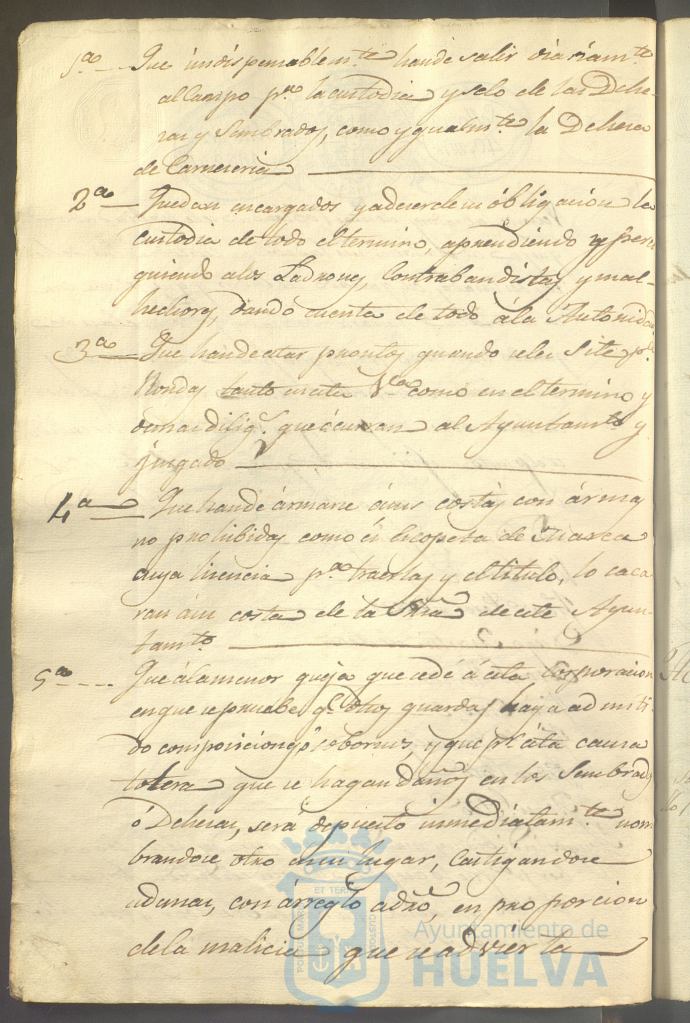 1ª — Que indispensablemte hande salir diariamte
al Campo pª la custodia y zelo de las Dehe-
sas y Sembrados, como ygualmte la Dehesa
de Carneceria
2ª — Quedan encargados y adeser de su óbligacion la
custodia de todo eltermino, aprendiendo y perse
guiendo alos Ladrones, Contrabandistas y mal-
hechores, dando cuenta de todo ála Autoridad
3ª — Que handeestar prontos quando seles Site pª
Rondas tanto enesta Vª como en eltermino y
demas diligs que ócurran al Ayuntamto y
juzgado
4ª — Que hande ármarse ásus costas con ármas
no prohibidas como és Escopeta de Marca
cuya licencia pª traerlas y eltitulo, lo saca
ran ásu costa de la Sria de este Ayun-
tamto
5ª — Que álamenor queja que sedé á ésta Corporacion
enque sepruebe qe dhos guardas haya admiti-
do composiciones ó sobornos, y que pr ésta causa
tolera que se hagan daños en los Sembrads
ó Dehesas, será depuesto inmediatamte nom
brandose otro ensu lugar, Castigandose
ademas, con árreglo adro, en proporcion
dela malicia que se advierta
ET TERRAE
PORTUS MARIS
CUSTODIA
Ayuntamiento de
HUELVA